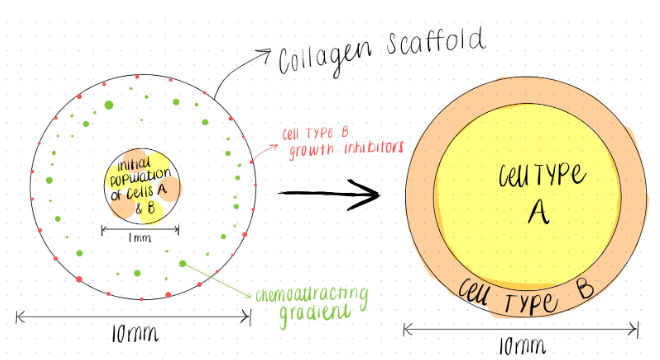 Collagen Scaffold
Cell Type B
growth inhibitors
Initial
population
of Cells A
& B
1mm
chemoattracting
gradient
10mm
Cell Type
A
Cell Type B
10mm